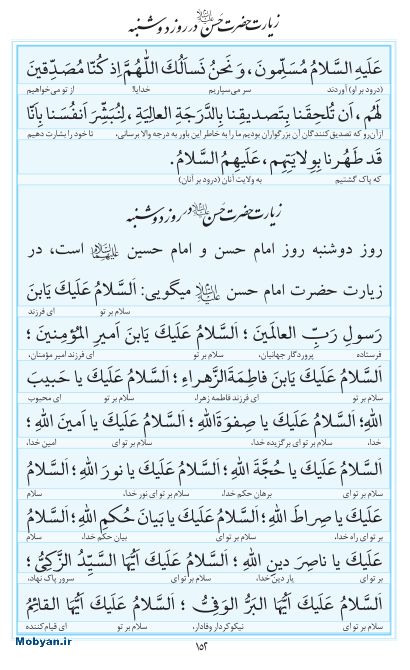 زیارت حضرت حَسَن علیه‌السلام در روز دوشنبه
عَلَیهِ السَّلامُ مُسَلِّمونَ، وَ نَحنُ نَسأَلُكَ اللّٰهُمَّ اِذ کُنّا مُصَدِّقینَ
(درود بر او) آوردند سر می‌سپاریم خدایا! از تو می‌خواهیم
لَهُم، اَن تُلحِقَنا بِتَصدیقِنا بِالدَّرَجَةِ العالِیَةِ، لِنُبَشِّرَ اَنفُسَنا بِاَنّا
از آن‌رو که تصدیق کنندگان آن بزرگواران بودیم ما را به خاطر این باور به درجه والا برسانی، تا خود را بشارت دهیم
قَد طَهُرنا بِوِلایَتِهِم، عَلَیهِمُ السَّلامُ.
که پاک گشتیم به ولایت آنان (درود بر آنان)
زیارت حضرت حَسَن علیه‌السلام در روز دوشنبه
روز دوشنبه روز امام حسن و امام حسین علیهماالسلام است، در
زیارت حضرت امام حسن علیه‌السلام میگویی: اَلسَّلامُ عَلَیكَ یَابنَ
سلام بر تو ای فرزند
رَسولِ رَبِّ العالَمینَ؛ اَلسَّلامُ عَلَیكَ یَابنَ اَمیرِ المُؤمِنینَ؛
فرستاده پروردگار جهانیان، سلام بر تو ای فرزند امیر مؤمنان،
اَلسَّلامُ عَلَیكَ یَابنَ فاطِمَةَ الزَّهراءِ؛ اَلسَّلامُ عَلَیكَ یا حَبیبَ
سلام بر تو ای فرزند فاطمه زهرا، سلام بر تو ای محبوب
اللهِ؛ اَلسَّلامُ عَلَیكَ یا صِفوَةَ اللهِ؛ اَلسَّلامُ عَلَیكَ یا اَمینَ اللهِ؛
خدا، سلام بر تو ای برگزیده خدا، سلام بر تو ای امین خدا،
اَلسَّلامُ عَلَیكَ یا حُجَّةَ اللهِ؛ اَلسَّلامُ عَلَیكَ یا نورَ اللهِ؛ اَلسَّلامُ
سلام بر تو ای برهان حکم خدا، سلام بر تو ای نور خدا، سلام
عَلَیكَ یا صِراطَ اللهِ؛ اَلسَّلامُ عَلَیكَ یا بَیانَ حُکمِ اللهِ؛ اَلسَّلامُ
بر تو ای راه خدا، سلام بر تو ای بیان حکم خدا، سلام
عَلَیكَ یا ناصِرَ دینِ اللهِ؛ اَلسَّلامُ عَلَیكَ اَیُّهَا السَّیِّدُ الزَّکِیُّ؛
بر تو ای یار دین خدا، سلام بر تو ای سرور پاک نهاد،
اَلسَّلامُ عَلَیكَ اَیُّهَا البَرُّ الوَفِیُّ؛ اَلسَّلامُ عَلَیكَ اَیُّهَا القائِمُ
سلام بر تو ای نیکوکردار وفادار، سلام بر تو ای قیام کننده
۱۵۲
Mobyan.ir